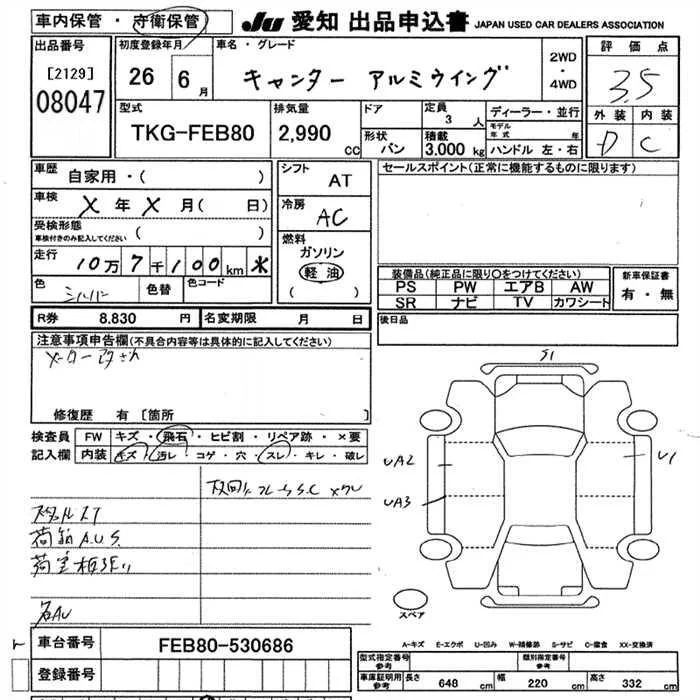 車内保管 ・ 守衛保管
JU 愛知 出品申込書 JAPAN USED CAR DEALERS ASSOCIATION
出品番号
[2129]
08047
初度登録年月
26 年 6 月
車名・グレード
キャンター アルミウイング
2WD
・
4WD
評価点
3.5
外装 内装
D C
型式
TKG-FEB80
排気量
2,990 cc
ドア
形状
バン
定員
3 人
積載
3,000 kg
ディーラー・並行
モデル年式 年
ハンドル 左・右
車歴
自家用・( )
車検
X 年 X 月( 日)
受検形態
車検付きのみ記入してください ( )
走行
10万7千100 km
色
シルバー
色替
色コード
シフト
AT
冷房
AC
燃料
ガソリン
軽油
( )
セールスポイント(正常に機能するものに限ります)
装備品(純正品に限り○をつけてください)
PS PW エアB AW
SR ナビ TV カワシート
新車保証書
有・無
R券 8.830 円
名変期限 月 日
後日品
注意事項申告欄(不具合内容等は具体的に記入してください)
修復歴 有 [箇所 ]
検査員 FW キズ・飛石・ヒビ割・リペア跡・×要
記入欄 内装 キズ・汚レ・コゲ・穴・スレ・キレ・破レ
S1
UA2
UA3
U1
スペア
A-キズ E-エクボ U-凹み W-補修跡 S-サビ C-腐食 XX-交換済
車台番号 FEB80-530686
登録番号
型式指定番号参考
類別指定番号参考
車庫証明用参考
長さ 648 cm
幅 220 cm
高さ 332 cm